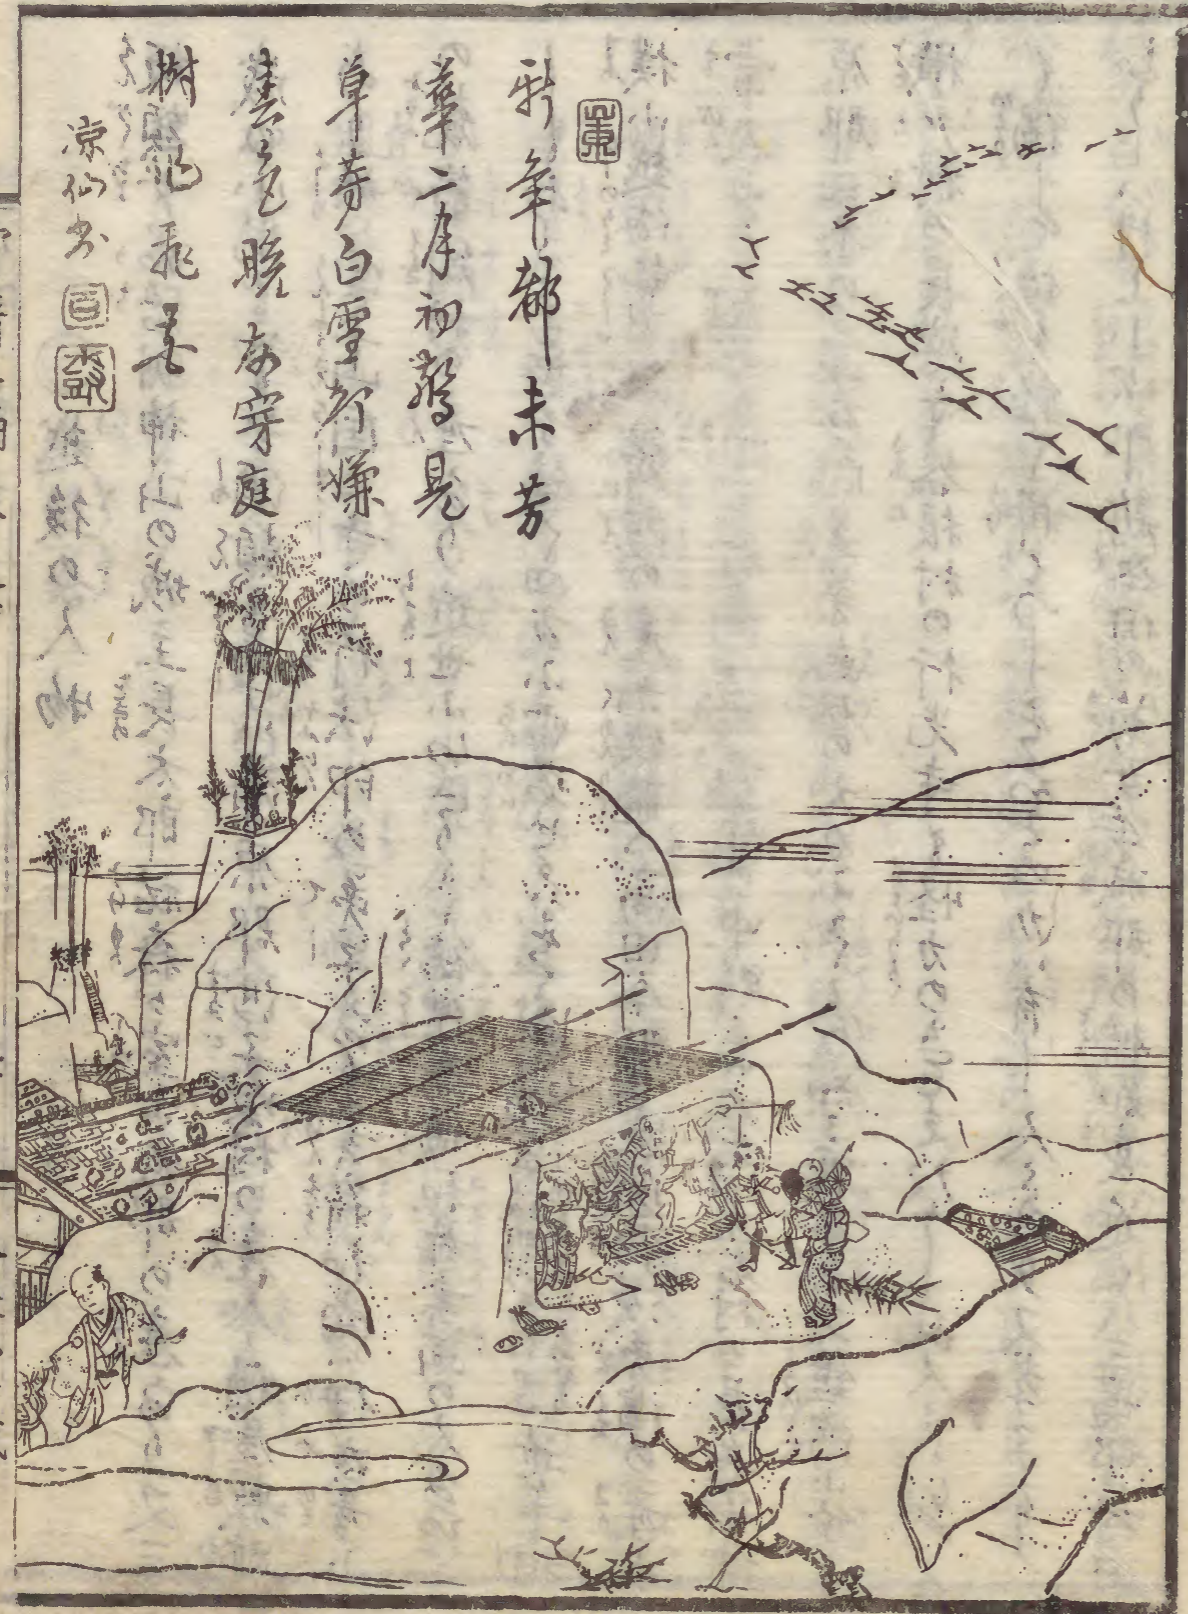 新年都未芳
華二月初驚見
草芽白雪却嫌
春色晩故穿庭
樹作飛花
涼仙書